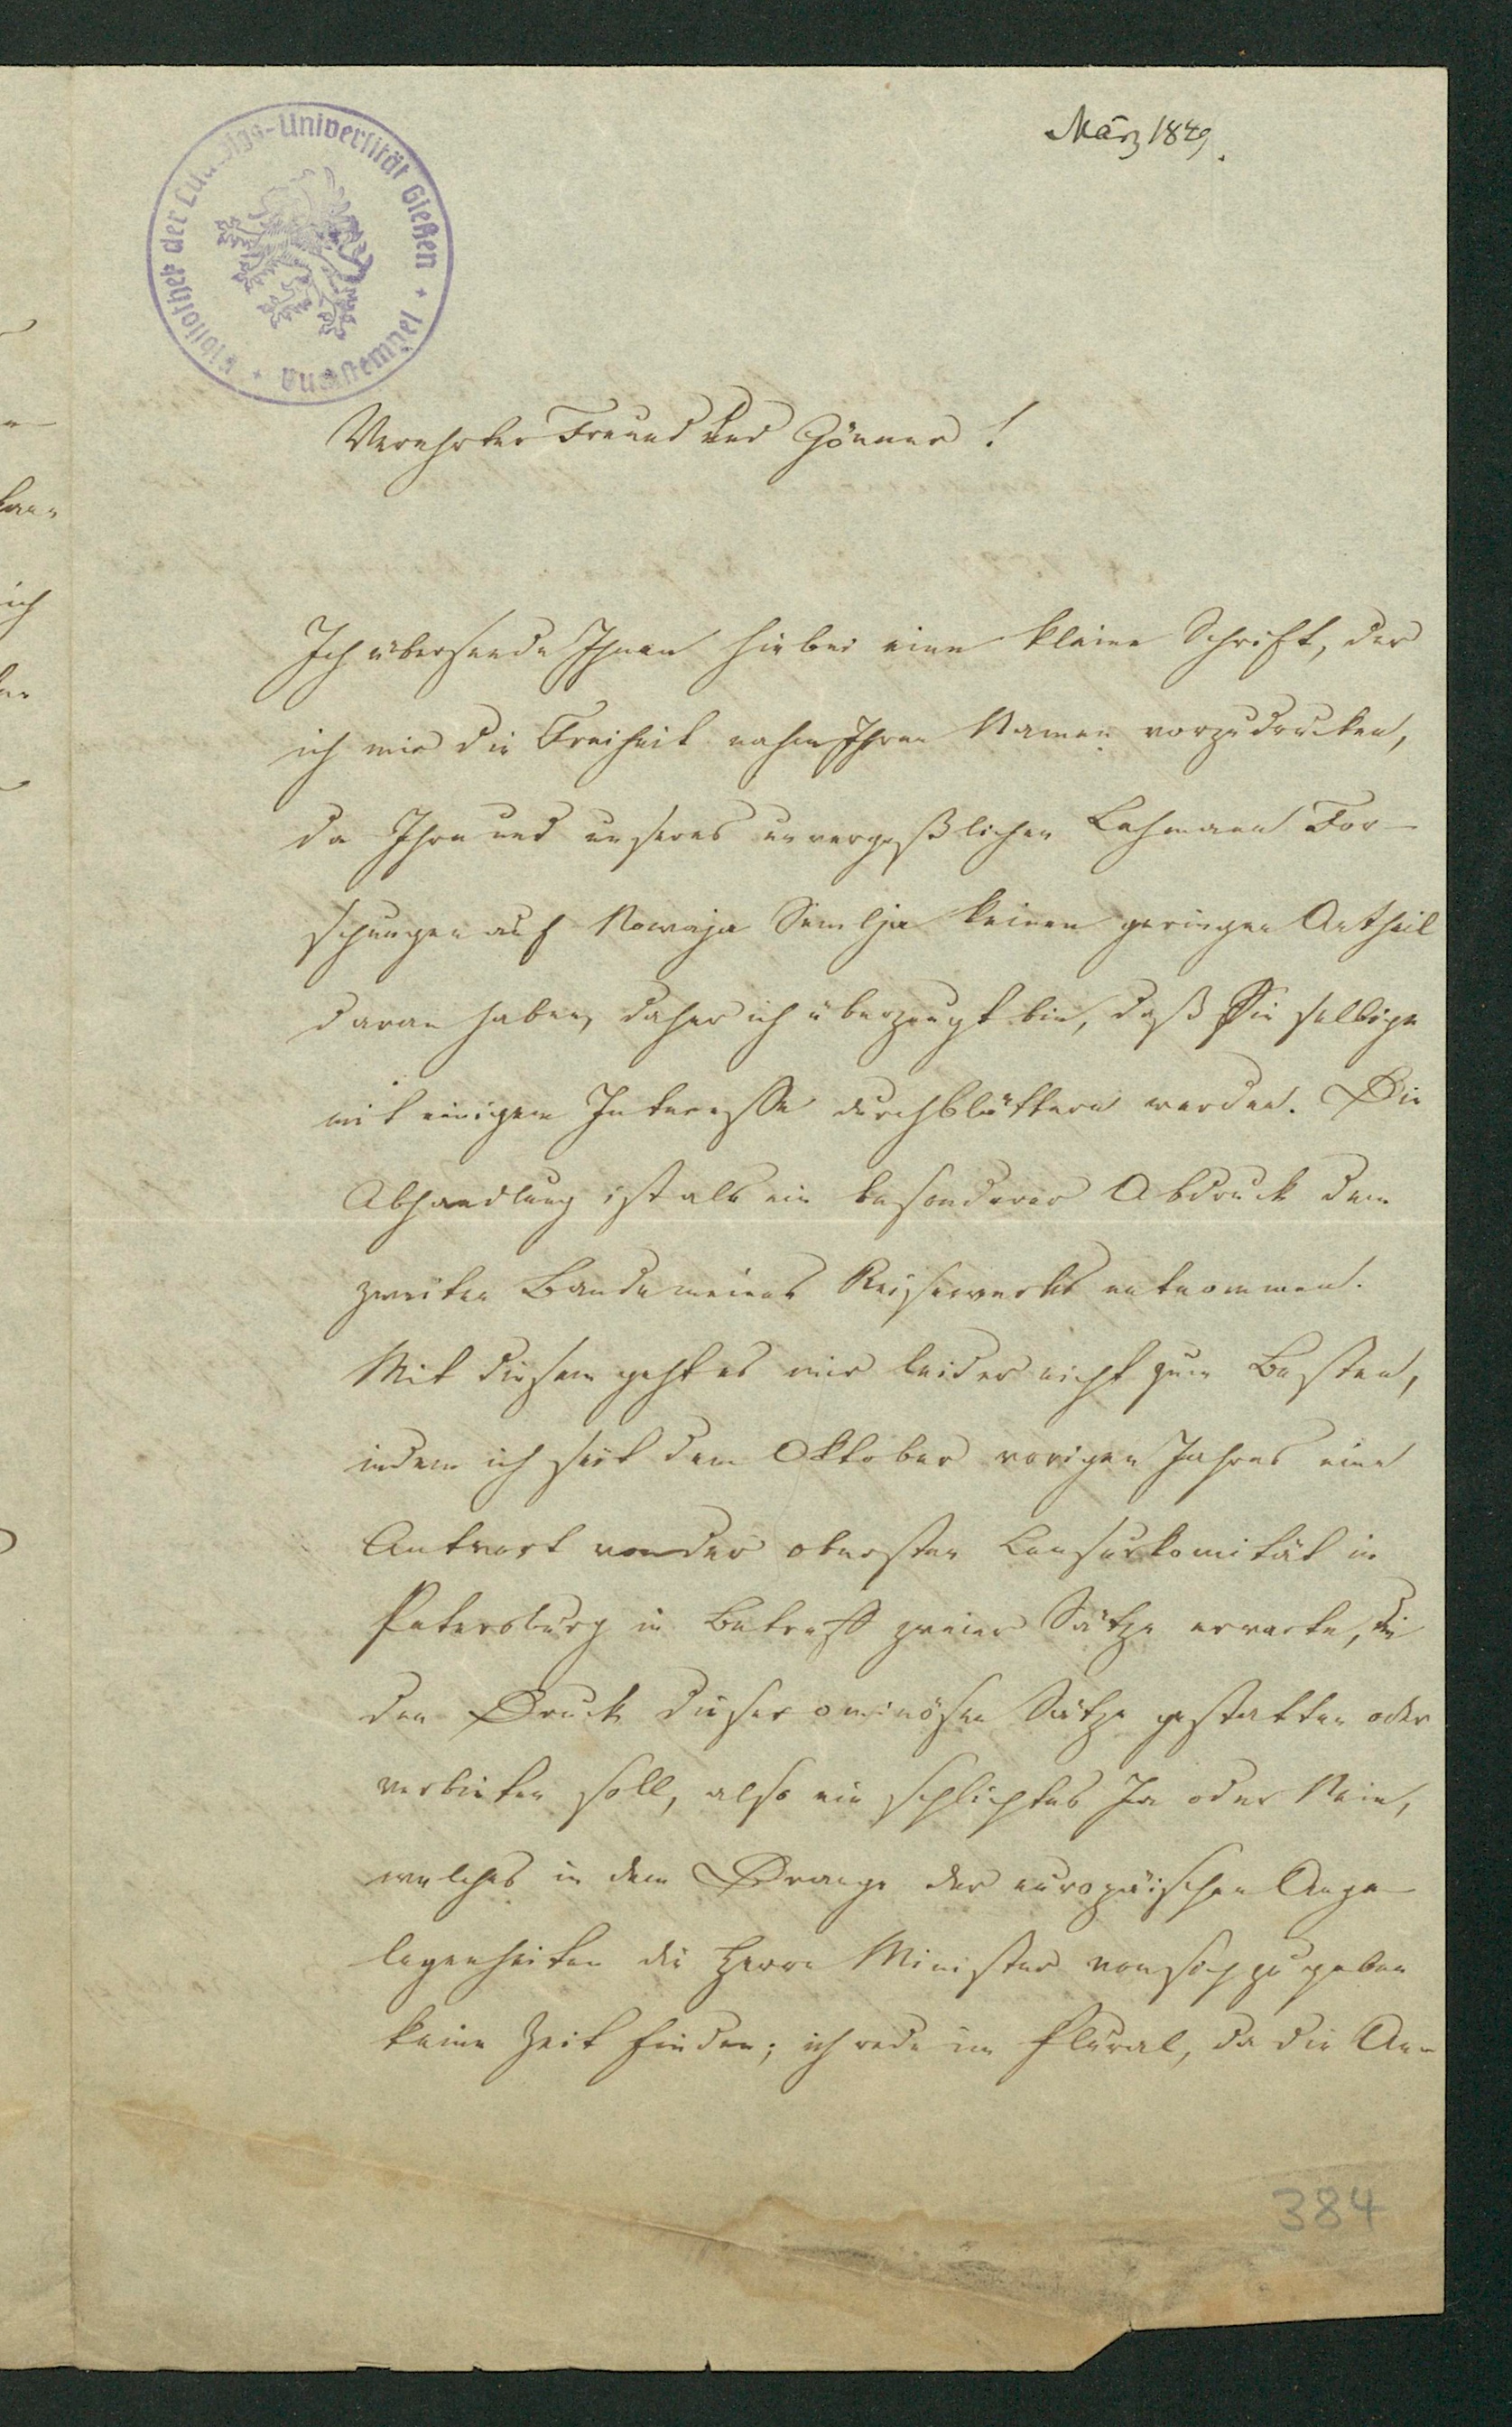 März 1849.
Bibliothek der Ludwigs-Universität Gießen
Buchstempel
Verehrter Freund und Gönner!
Ich übersende Ihnen hiebei eine kleine Schrift, der
ich mir die Freiheit nahm Ihren Namen vorzudrucken,
da Ihre und unseres unvergeßlichen Lehmann For-
schungen auf Nowaja Semlja keinen geringen Antheil
daran haben, daher ich überzeugt bin, daß Sie selbige
mit einigem Interesse durchblättern werden. Die
Abhandlung ist als ein besonderer Abdruck dem
zweiten Bande meines Reisewerks entnommen.
Mit diesem geht es mir leider nicht zum Besten,
indem ich seit dem Oktober vorigen Jahres eine
Antwort von der obersten Censurkomität in
Petersburg in Betreff zweier Sätze erwarte, die
den Druck dieser ominösen Sätze gestatten oder
verbieten soll, also ein schlichtes Ja oder Nein,
welches in dem Drange der europäischen Ange-
legenheiten die Herrn Minister von sich zu geben
keine Zeit finden; ich rede im Plural, da die An-
384